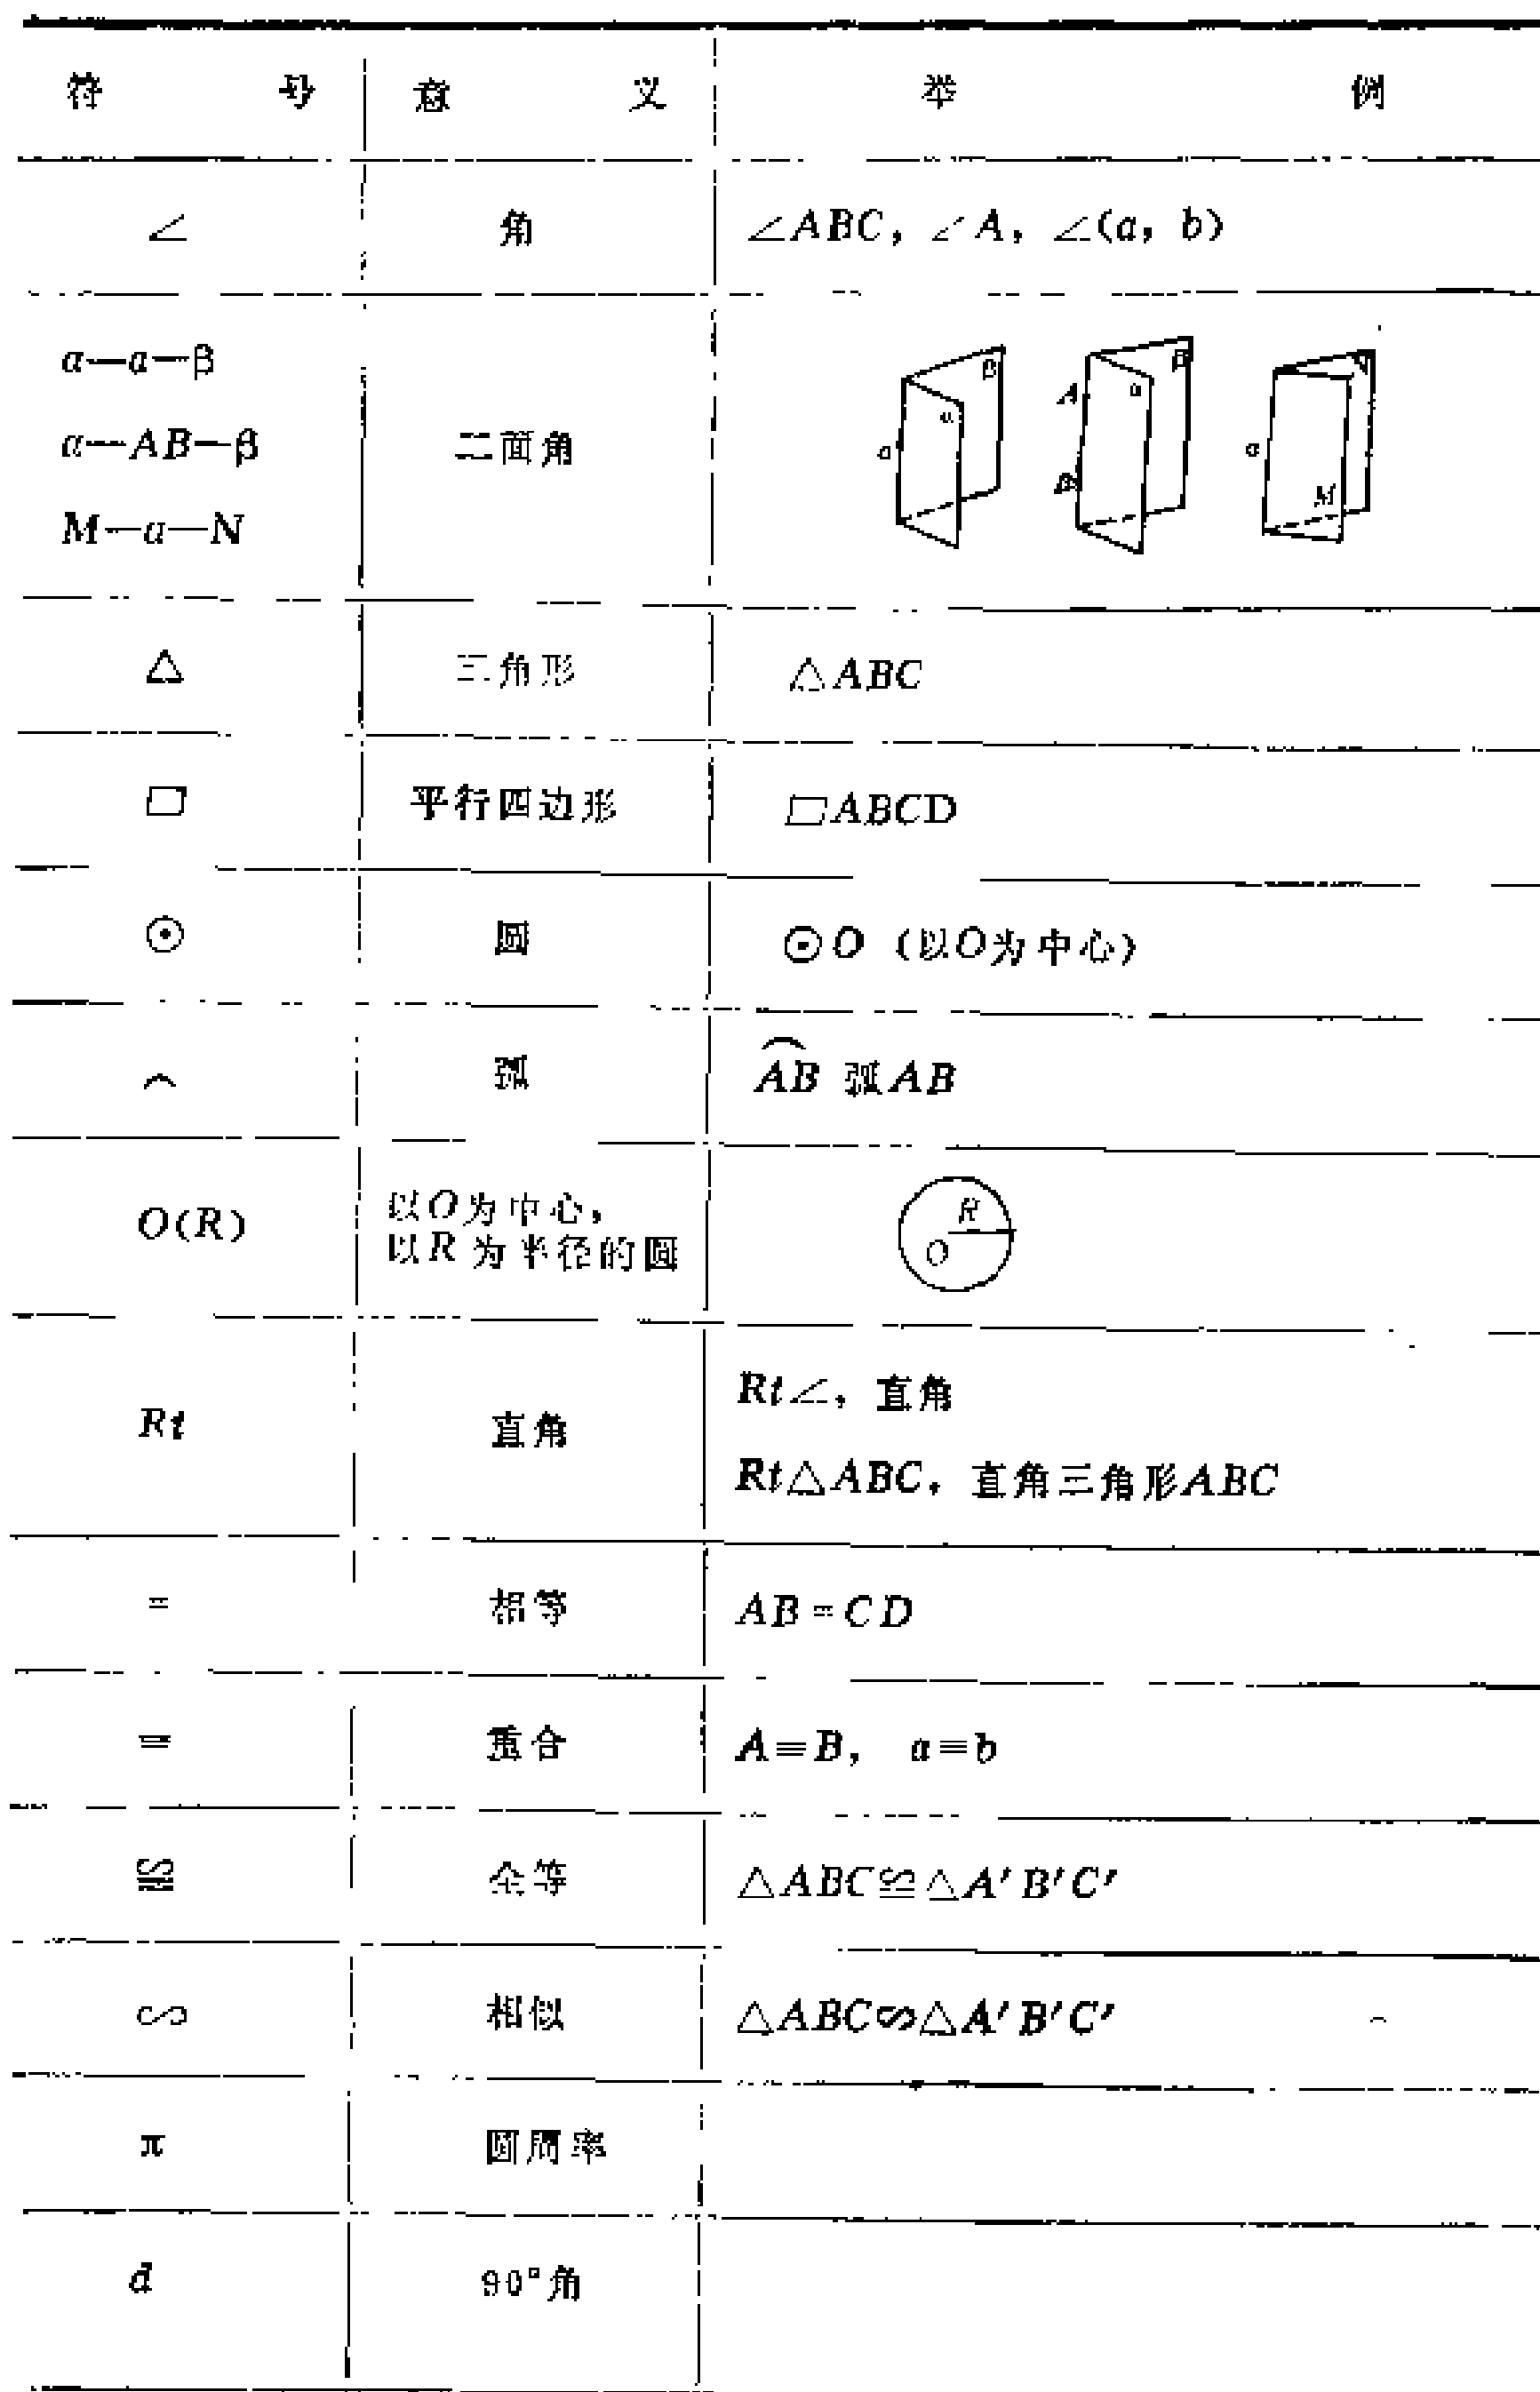 符号 意义 举例
∠ 角 ∠ABC, ∠A, ∠(a, b)
α—a—β
α—AB—β 二面角
M—a—N
β α a
A B α β
a M N
△ 三角形 △ABC
▱ 平行四边形 ▱ABCD
⊙ 圆 ⊙O (以O为中心)
⌒ 弧 A͡B 弧AB
O(R) 以O为中心,
以R为半径的圆
R
O
Rt 直角 Rt∠, 直角
Rt△ABC, 直角三角形ABC
= 相等 AB=CD
≡ 重合 A≡B, a≡b
≌ 全等 △ABC≌△A′B′C′
∽ 相似 △ABC∽△A′B′C′
π 圆周率
d 90°角